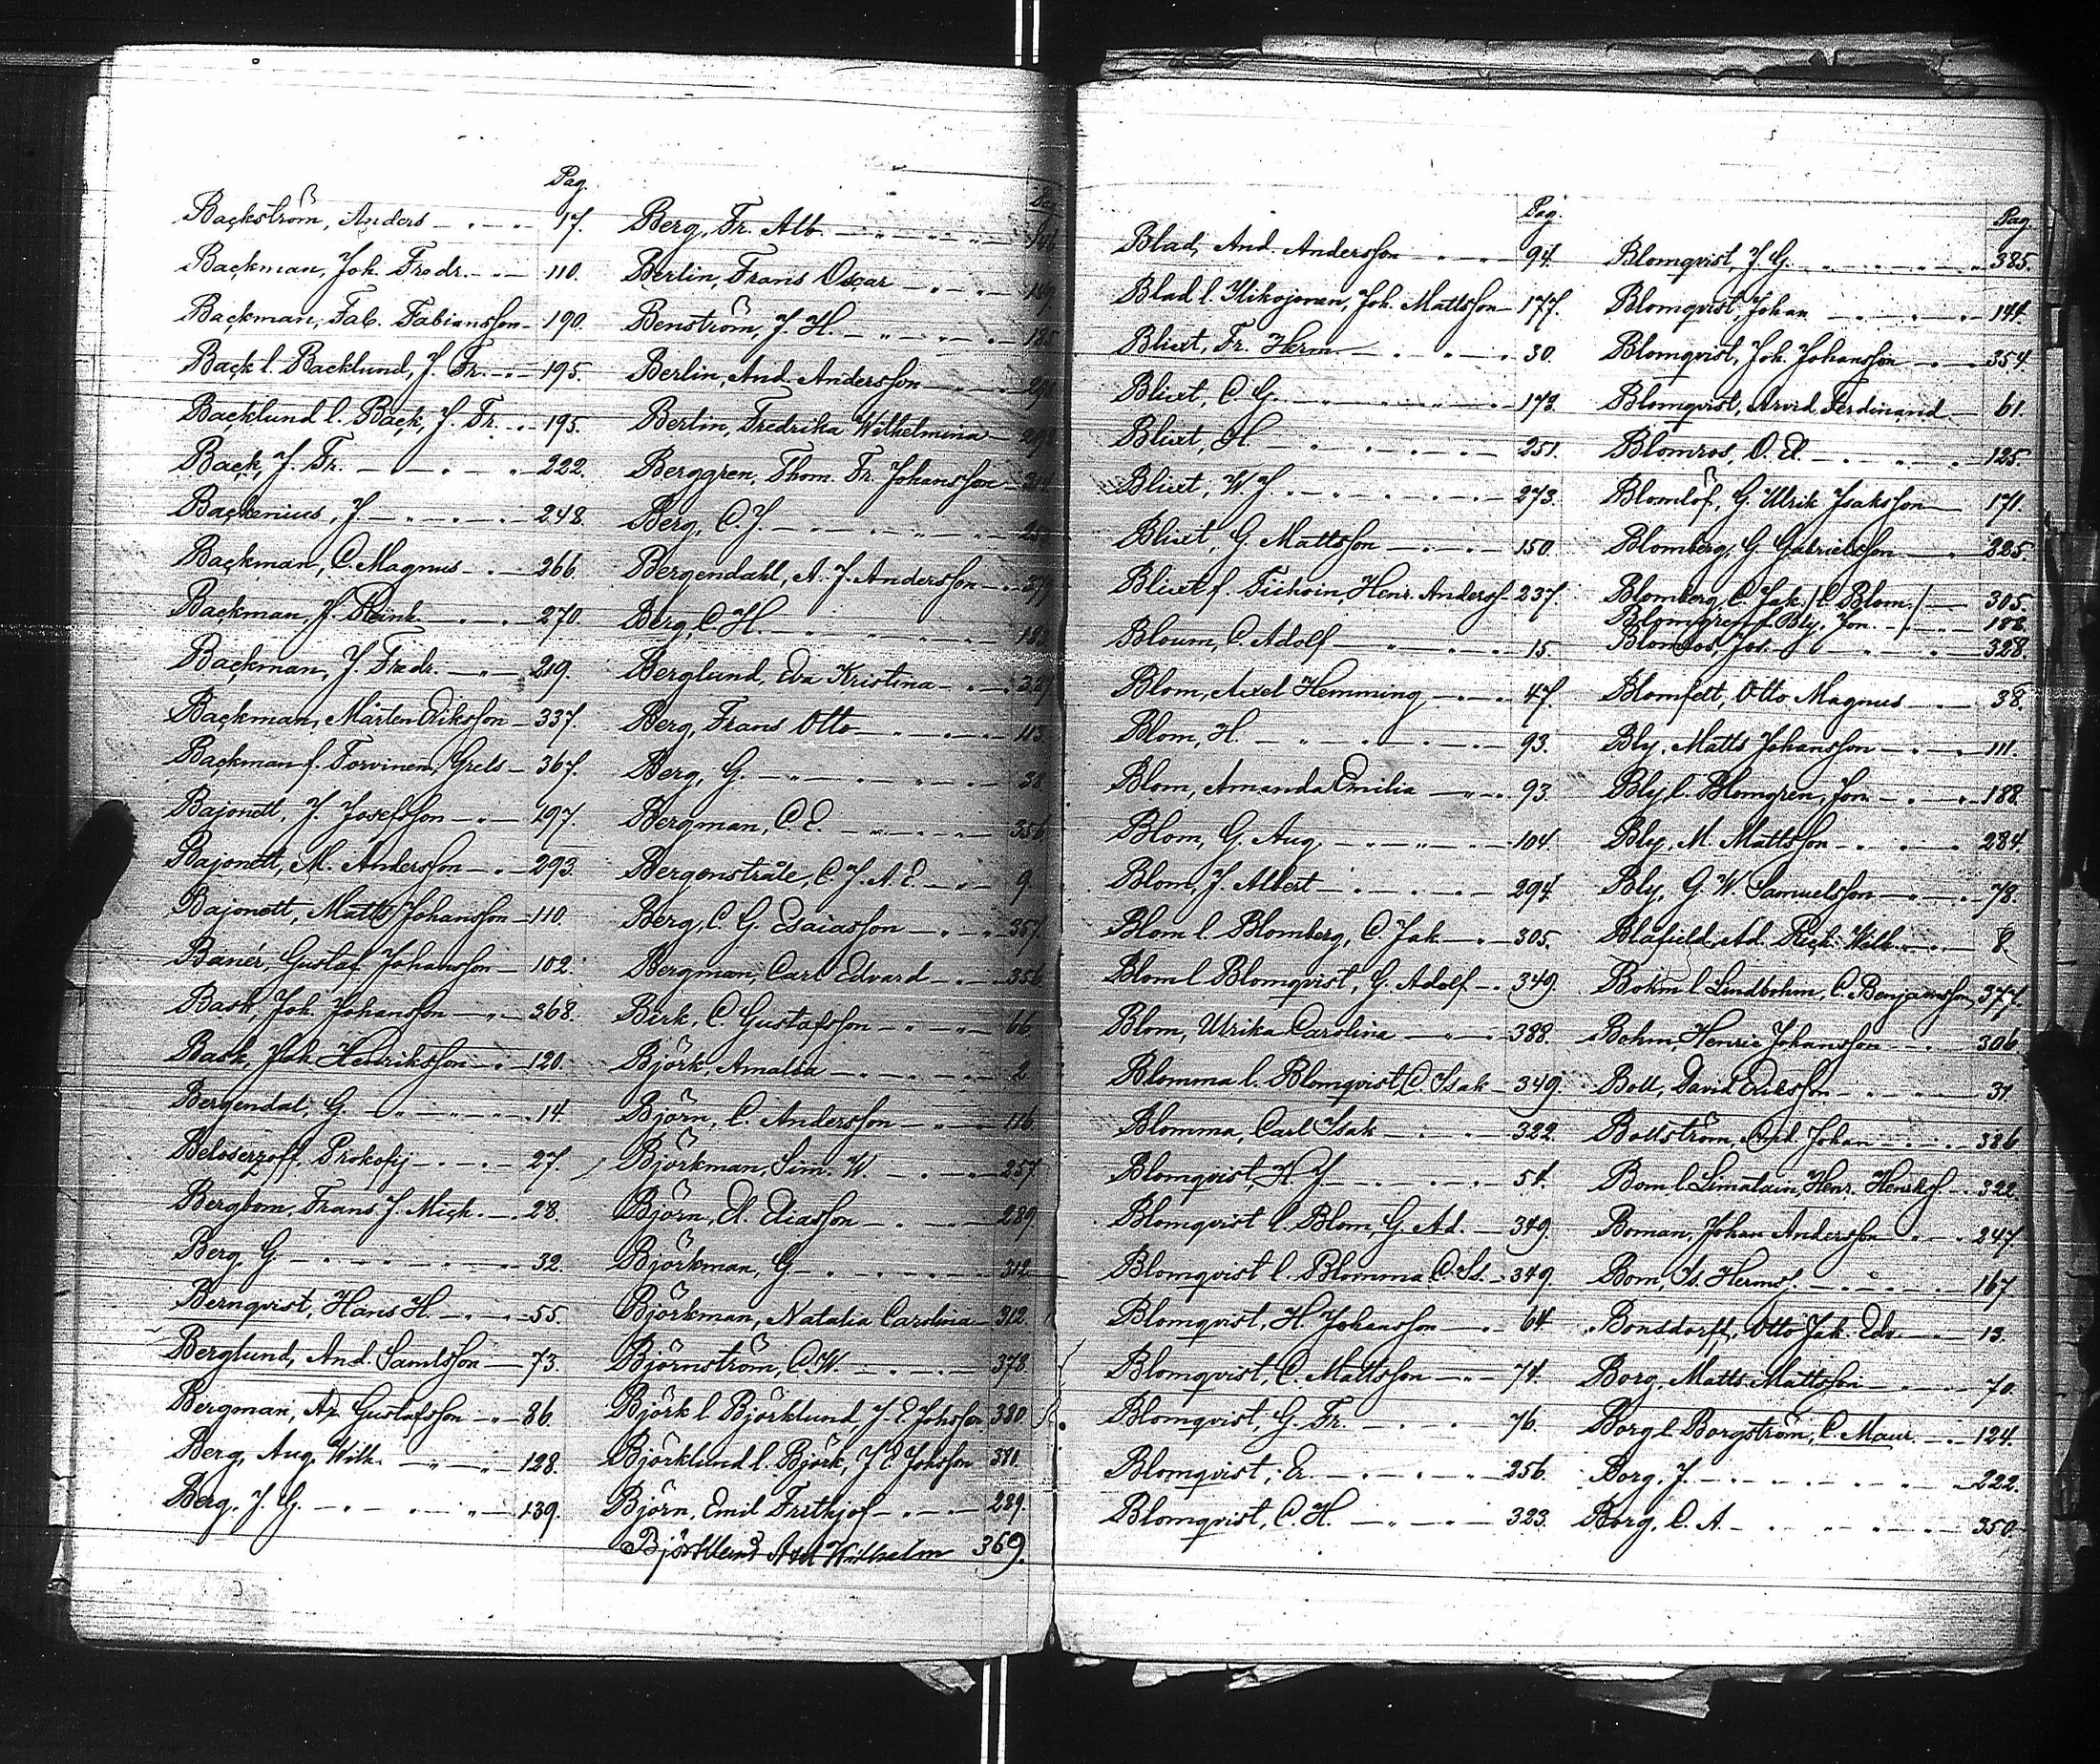 Pag.
Backström, Anders 17.
Backman, Joh. Fredr. 110.
Backman, Fab. Fabiansson 190.
Back l. Backlund, J. Fr. 195.
Backlund l. Back, J. Fr. 195.
Back, J. Fr. 222.
Backenius, J. 248.
Backman, C. Magnus 266.
Backman, J. Reinh. 270.
Backman, J. Fredr. 219.
Backman, Mårten Eriksson 337.
Backman f. Torvinen, Grels 367.
Bajonett, J. Josefsson 197.
Bajonett, M. Andersson 293.
Bajonett, Matts Johansson 110.
Banér, Gustaf Johansson 102.
Bask, Joh. Johansson 368.
Bask, Joh. Henriksson 120.
Bergendal, G. 14.
Beloserzoff, Prokofij 27.
Bergbom, Frans J. Mich. 28.
Berg, G. 32.
Bernqvist, Hans H. 55.
Berglund, And. Samlsson 73.
Bergman, Gustafsson 86.
Berg, Aug. Wilh. 128.
Berg, J. G. 139.
Berg, Fr. Alb.
Berlin, Frans Oscar
Benström, J. H.
Berlin, And. Andersson
Berlin, Fredrika Wilhelmina
Berggren, Thom. Fr. Johansson
Berg, C. J.
Bergendahl, A. J. Andersson
Berg, C. H.
Berglund, Eva Kristina
Berg, Frans Otto
Berg, G.
Bergman, C. E. 356.
Bergenstråle, C. J. A. E. 9.
Berg, C. G. Esaiasson 357.
Bergman, Carl Edvard 356.
Berk, C. Gustafsson 66.
Björk, Amalda 2.
Björn, C. Andersson 116.
Björkman, Sim. W. 257.
Björn, El. Eliasson 289.
Björkman, G. 312.
Björkman, Natalia Carolina 312.
Björnström, C. W. 378.
Björk l. Björklund, J. E. Johsson 380.
Björklund l. Björk, J. E. Johsson
Björn, Emil Frithjof 289.
Björklund Axel Wilhelm 369.
Pag.
Blad, And. Andersson 94.
Blad l. Kikojonen, Joh. Mattsson 177.
Blixt, Fr. Herm. 30.
Blixt, C. G. 173.
Blixt, H. 251.
Blixt, W. J. 273.
Blixt, G. Mattsson 150.
Blixt f. Henr. Anderss. 237.
Bloum, C. Adolf 15.
Blom, Axel Hemming 47.
Blom, H. 93.
Blom, Amanda Emilia 93.
Blom, G. Aug. 104.
Blom, J. Albert 294.
Blom l. Blomberg, C. Jak. 305.
Blom l. Blomqvist, G. Adolf 349.
Blom, Ulrika Carolina 388.
Blomma l. Blomqvist C. Isak 349.
Blomma, Carl Isak 322.
Blomqvist, K. J. 54.
Blomqvist l. Blom, G. Ad. 349.
Blomqvist l. Blomma, C. Is. 349.
Blomqvist, H. Johansson 64.
Blomqvist, C. Mattsson 74.
Blomqvist, G. Fr. 76.
Blomqvist, Er. 256.
Blomqvist, C. H. 323.
Pag.
Blomqvist, J. G. 385.
Blomqvist, Johan 144.
Blomqvist, Joh. Johansson 354.
Blomqvist, Arvid Ferdinand 61.
Blomros, O. El. 125.
Blomlöf, G. Ulrik Isaksson 171.
Blomberg, G. Gabrielsson 225.
Blomberg, C. Jak. /l. Blom./ 305.
Blomgren l. Bly, Jon. 188
Blomros, Jos. 328.
Blomfelt, Otto Magnus 38.
Bly, Matts Johansson 111.
Bly l. Blomgren, Jon. 188.
Bly, M. Mattsson 284.
Bly, G. W. Samuelsson 78.
Blåfield, Ad. Rich. Wilh. 8
Bohm l. Lindbohm, C. Benjamsson 377.
Bohm, Henric Johansson 306.
Boll, David Eriksson 31
Bollström, Carl Johan 386
Bom l. Limatain, Henr. Henrikss. 322.
Boman, Johan Andersson 247.
Bom, Is. Hermss. 167
Bonsdorff, Otto Jak. Edv. 13.
Borg, Matts Mattsson 70.
Borg l. Borgström, C. Maur. 124.
Borg, J. 222.
Borg, C. A. 350.